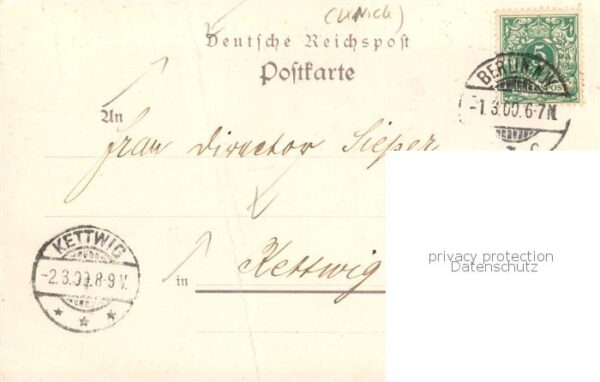 Deutsche Reichspost
Postkarte
5
BERLIN N.W.
-1.3.00.6-7N.
An
Frau Director
KETTWIG
-2.3.00.8-9V.
in Kettwig
privacy protection
Datenschutz